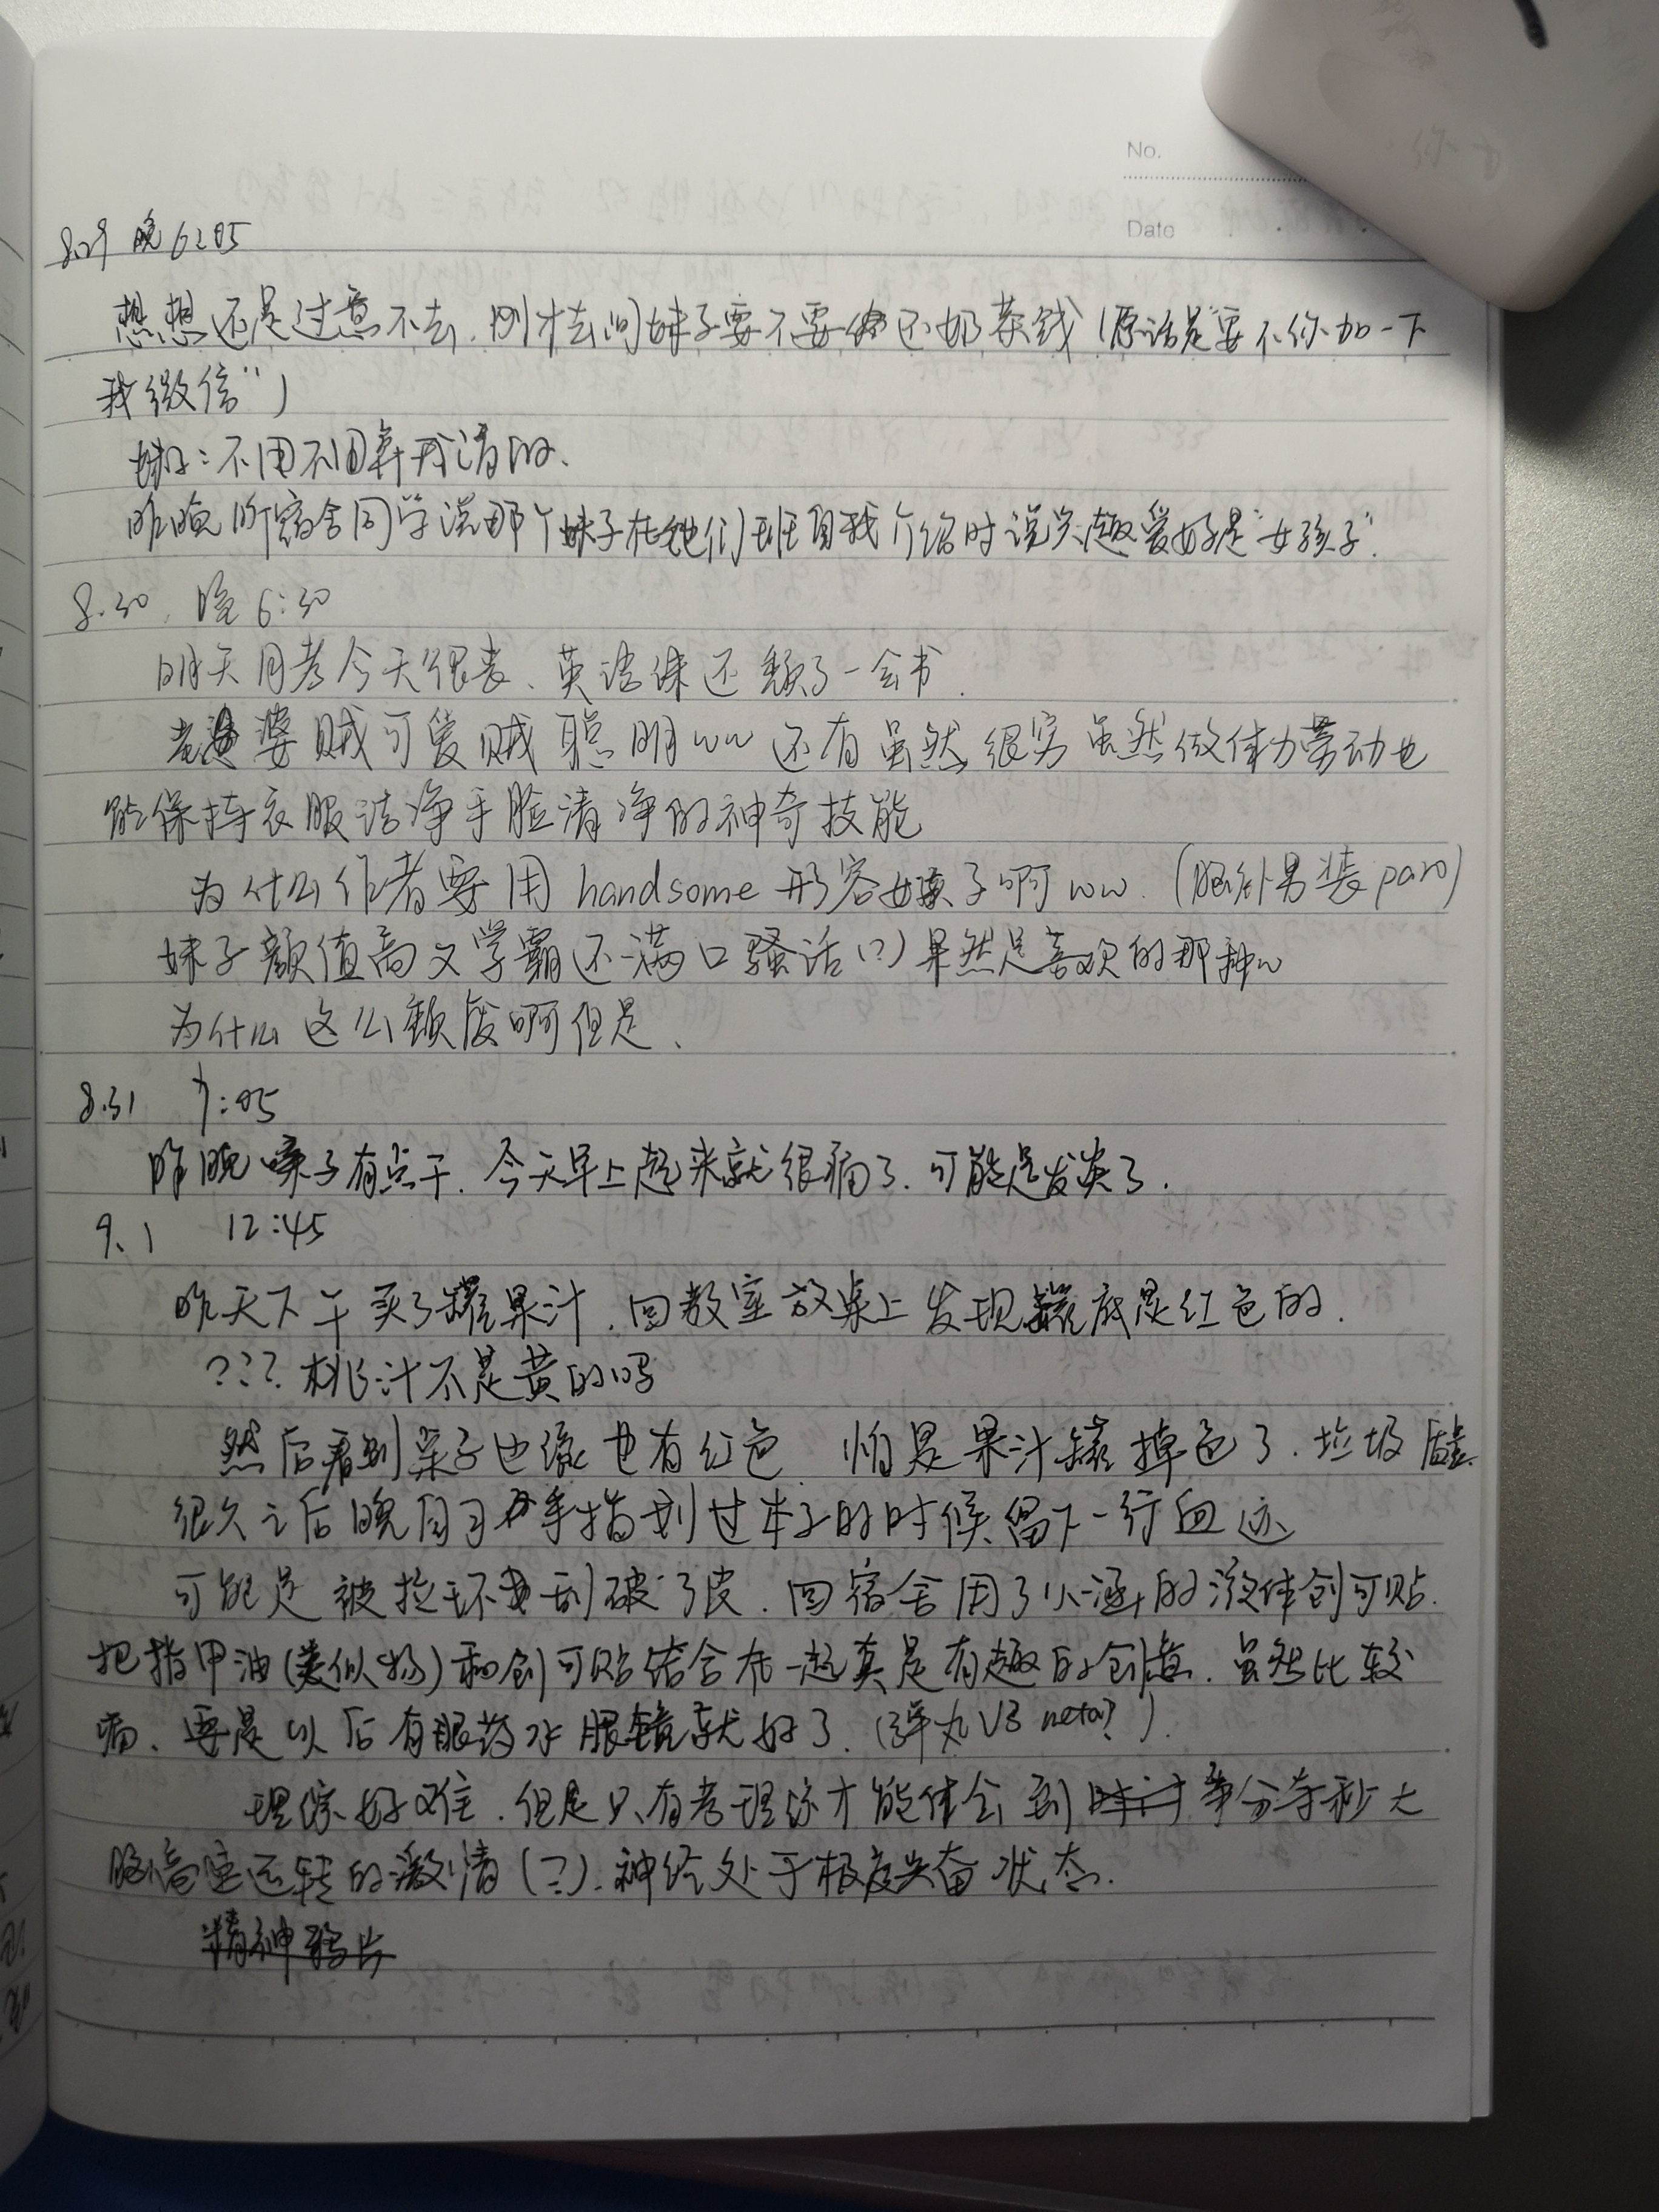 No.
Date
8.29 晚 6:05
想想还是过意不去,刚才去问妹子要不要还奶茶钱(原话是"要不你加一下
我微信")
妹子:不用不用算我请的.
昨晚听宿舍同学说那个妹子在她们班自我介绍时说兴趣爱好是"女孩子".
8.30. 晚 6:30
明天月考今天很丧、英语课还颓了一会书.
老婆贼可爱贼聪明ww 还有虽然很穷虽然做体力劳动也
能保持衣服洁净手脸清净的神奇技能
为什么作者要用 handsome 形容女孩子啊 ww. (脑补男装 paro)
妹子颜值高又学霸还满口骚话(?)果然是喜欢的那种w
为什么这么颓废啊但是、
8.31 7:05
昨晚嗓子有点干.今天早上起来就很痛了.可能是发炎了.
9.1 12:45
昨天下午买了罐果汁.回教室放桌上发现罐底是红色的.
???桃汁不是黄的吗
然后看到桌子边缘也有红色.怕是果汁罐掉色了.垃圾罐.
很久之后晚自习手指划过本子的时候留下一行血迹
可能是被拉环刮破了皮.回宿舍用了小涵的液体创可贴.
把指甲油(类似物)和创可贴结合在一起真是有趣的创意.虽然比较
痛、要是以后有眼药水眼镜就好了.(弹丸V3 neta?)
理综好难.但是只有考理综才能体会到争分夺秒大
脑高速运转的激情(?).神经处于极度兴奋状态.
精神鸦片